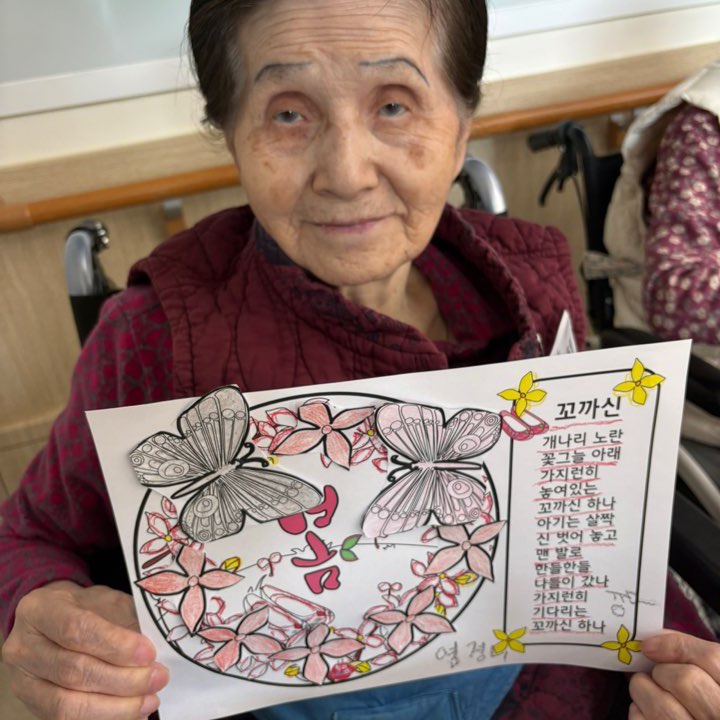 봄
꼬까신
개나리 노란
꽃그늘 아래
가지런히
놓여있는
꼬까신 하나
아기는 살짝
신 벗어 놓고
맨 발로
한들한들
나들이 갔나
가지런히
기다리는
꼬까신 하나